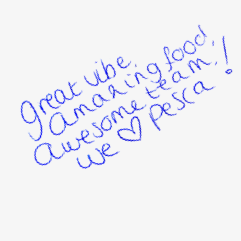 great vibe.
Amazing food,
Awesome team.
We ♡ Pesca!